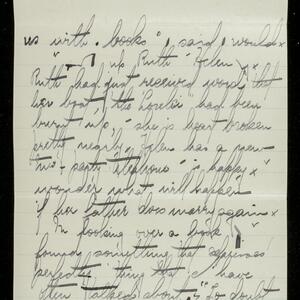 us with "books", I said I would
up Ruth Helen
Ruth had just received word that
her boat "the Loseta" had been
burnt up, she is heart broken
pretty nearly. Helen has a new
wonder what will happen
if her father does marry again
In looking over a book I
found something that expresses
perfectly a thing that I have
often talked about: "To doubt